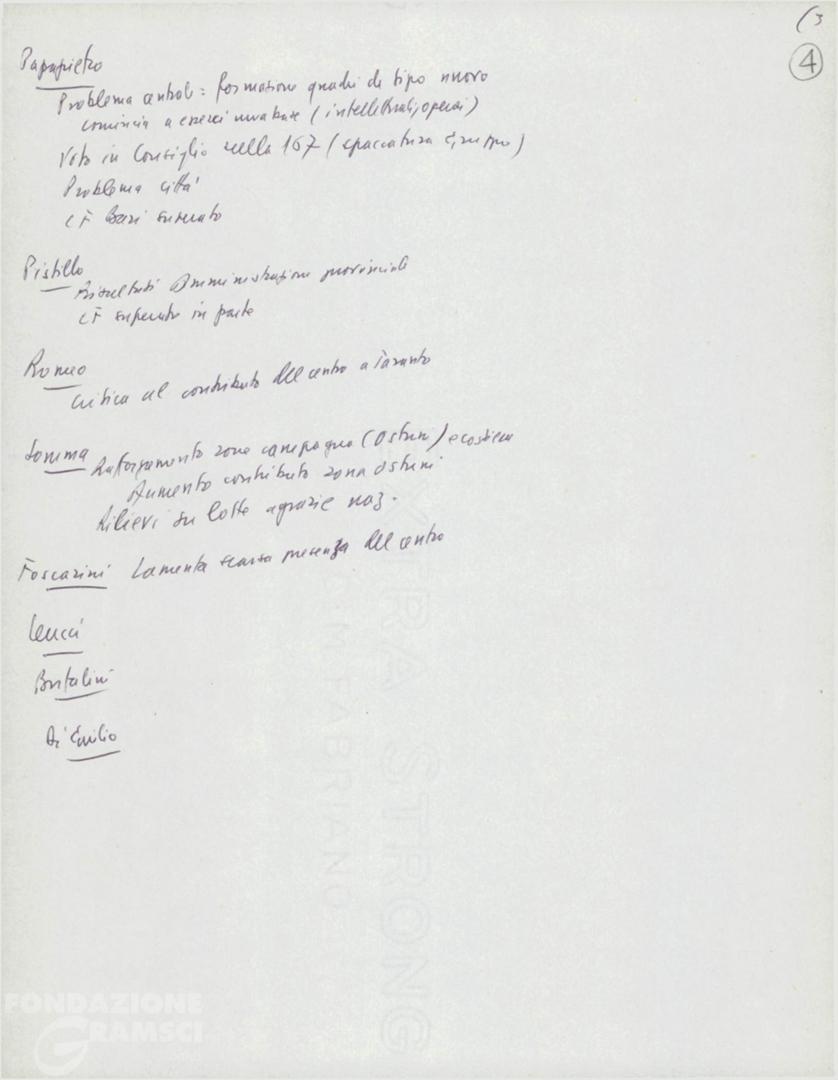 (3
4
Papapietro
Problema centrale = formazione quadri di tipo nuovo
comincia a esserci una base (intellettuali, operai)
Voto in Consiglio nella 167 (spaccatura gruppo)
Problema città
CF Bari superato
Pistillo
Risultati Amministrazione provinciale
CF superato in parte
Romeo
critica al contributo del centro a Taranto
Somma Rafforzamento zone campagna (Ostuni) e costiera
Aumento contributo zona Ostuni
Rilievi su lotte agrarie naz.
Foscarini Lamenta scarsa presenza del centro
Leucci
Bortolini
Di Emilio
EXTRA STRONG
A.M. FABRIANO
FONDAZIONE
GRAMSCI